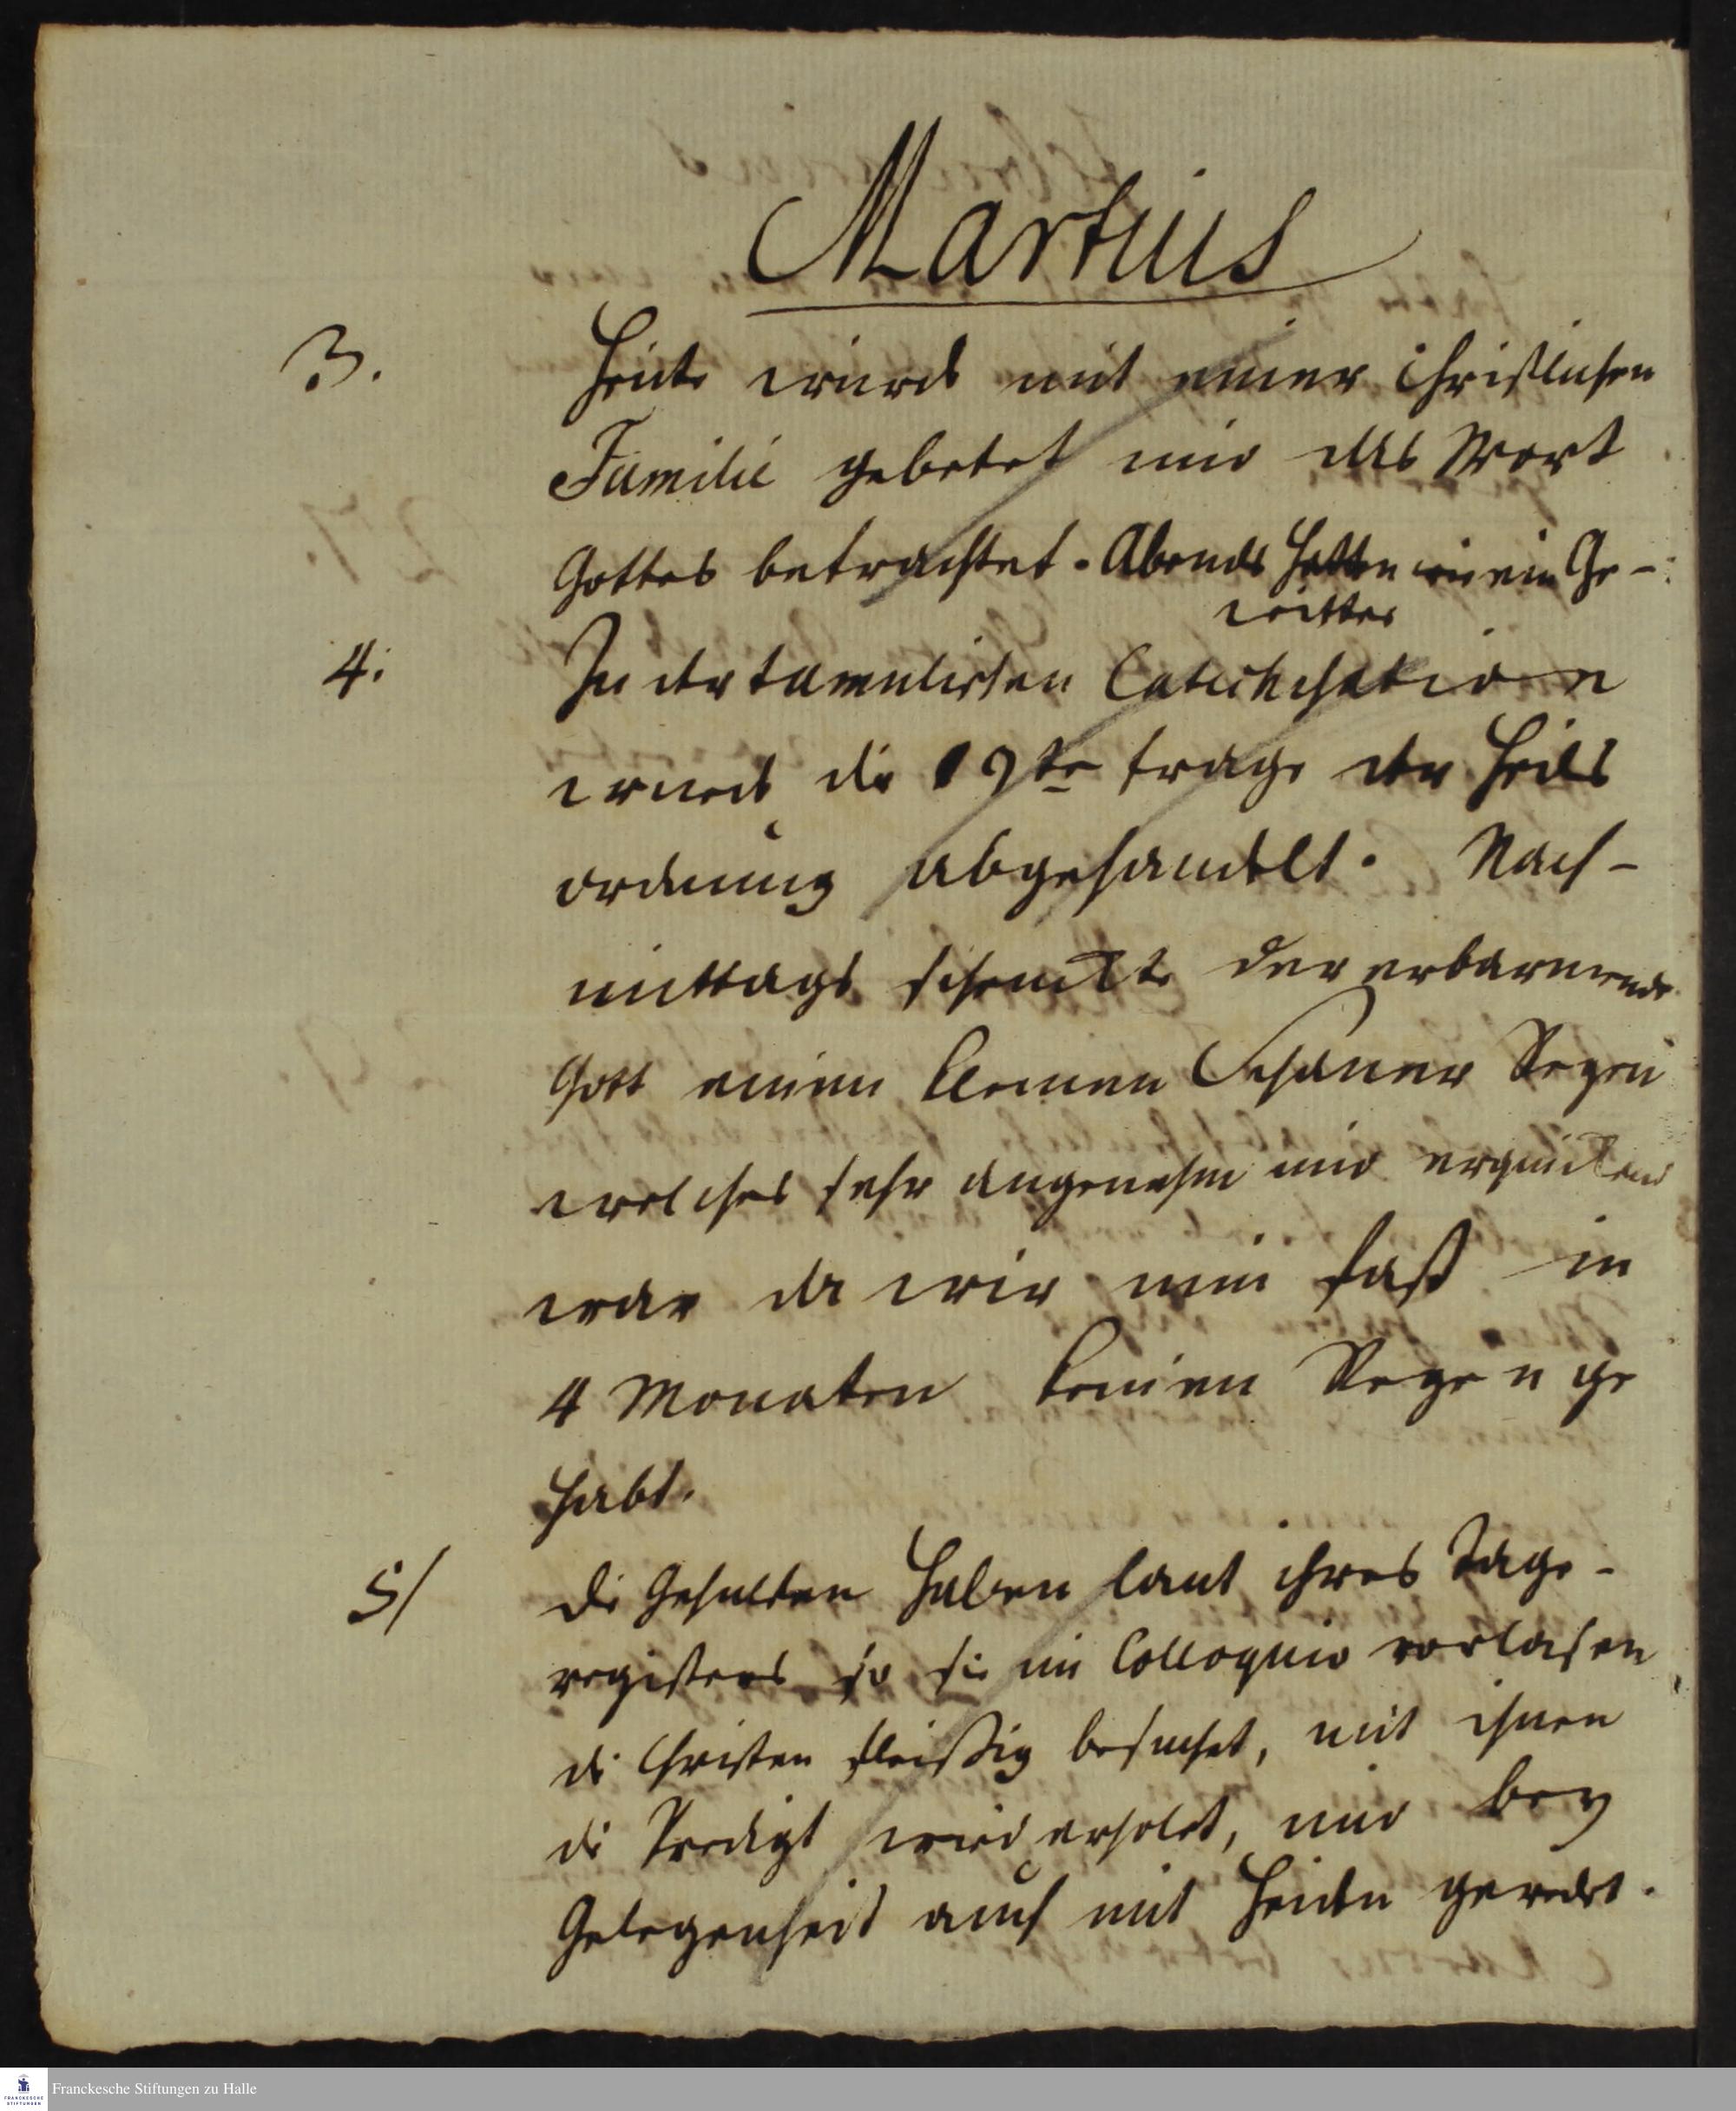 Martius
3. Heute wurde mit einer Christlichen
Familie gebetet und das Wort
Gottes betrachtet. Abends hatten wir ein Ge-
witter
4. In der tamulischen Catechisation
wurde die 19te frage der Heils
ordnung abgehandelt. Nach-
mittags schenckte der erbarmende
Gott einen kleinen Schauer Regen
welches sehr angenehm und erquickend
war da wir nun fast in
4 Monaten keinen Regen ge
habt.
5/ die Gehülfen haben laut ihres Tage-
registers so sie im Colloquio vorlasen
die Christen fleißig besuchet, mit ihnen
die Predigt wiederholet, und bey
Gelegenheit auch mit Heiden geredet.
Franckesche Stiftungen zu Halle
FRANCKESCHE
STIFTUNGEN